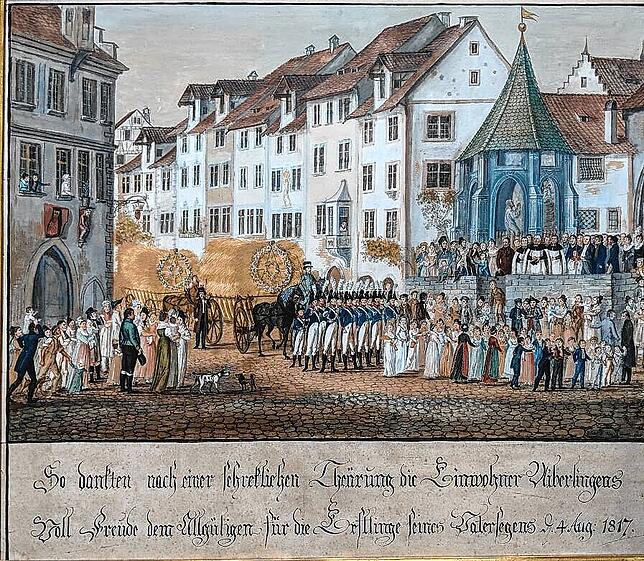 So dankten nach einer schrekliehen Theürung die Einwohner Uiberlingens
Voll Freude dem Allgütigen für die Erstlinge seines Vatersegens d. 4. Aug. 1817.